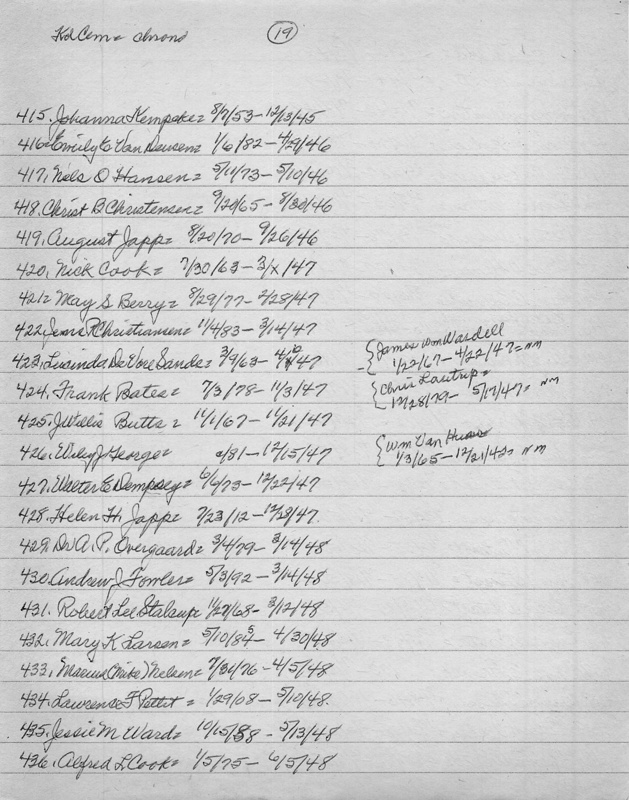 Kd Cem= chrono
19
415. Johanna Kempske= 8/7/53-12/13/45
416. Emily E Van Deusen= 1/6/82-4/29/46
417. Nels O Hansen= 5/11/73-5/10/46
418. Christ B Christensen= 9/20/65-8/30/46
419. August Japp= 8/20/70-9/26/46
420. Nick Cook= 7/30/63-3/x/47
421= May S Berry= 8/29/77-2/28/47
422. Jens P Christiansen= 11/4/83-3/14/47
423. Lucinda DeVore Sands= 3/9/63-4/ /47
{James Wm Wardell
1/22/67-4/22/47= nm
424. Frank Bates= 7/3/78-11/3/47
{Chris Lautrup=
12/28/79- 5/17/47= nm
425. J Willis Butts= 11/1/67-11/21/47
426. Wiley J George= /81-12/15/47
{Wm Van
1/3/65-12/21/47= nm
427. Walter E Dempsey= 6/6/73-12/22/47
428. Helen H. Japp= 7/23/12-12/28/47.
429. Dr A. P. Overgaard= 3/4/79-3/14/48
430. Andrew J Fowler= 5/3/92-3/14/48
431. Robert Lee Stalsup 11/27/68-3/12/48
432. Mary K Larsen= 5/10/85-4/30/48
433. Marius (Mike) Nelsen= 7/30/76-4/5/48
434. Lawrence F Pettit = 1/29/08-5/10/48.
435. Jessie M Ward= 10/15/88-5/13/48
436. Alfred L Cook= 1/5/75-6/5/48